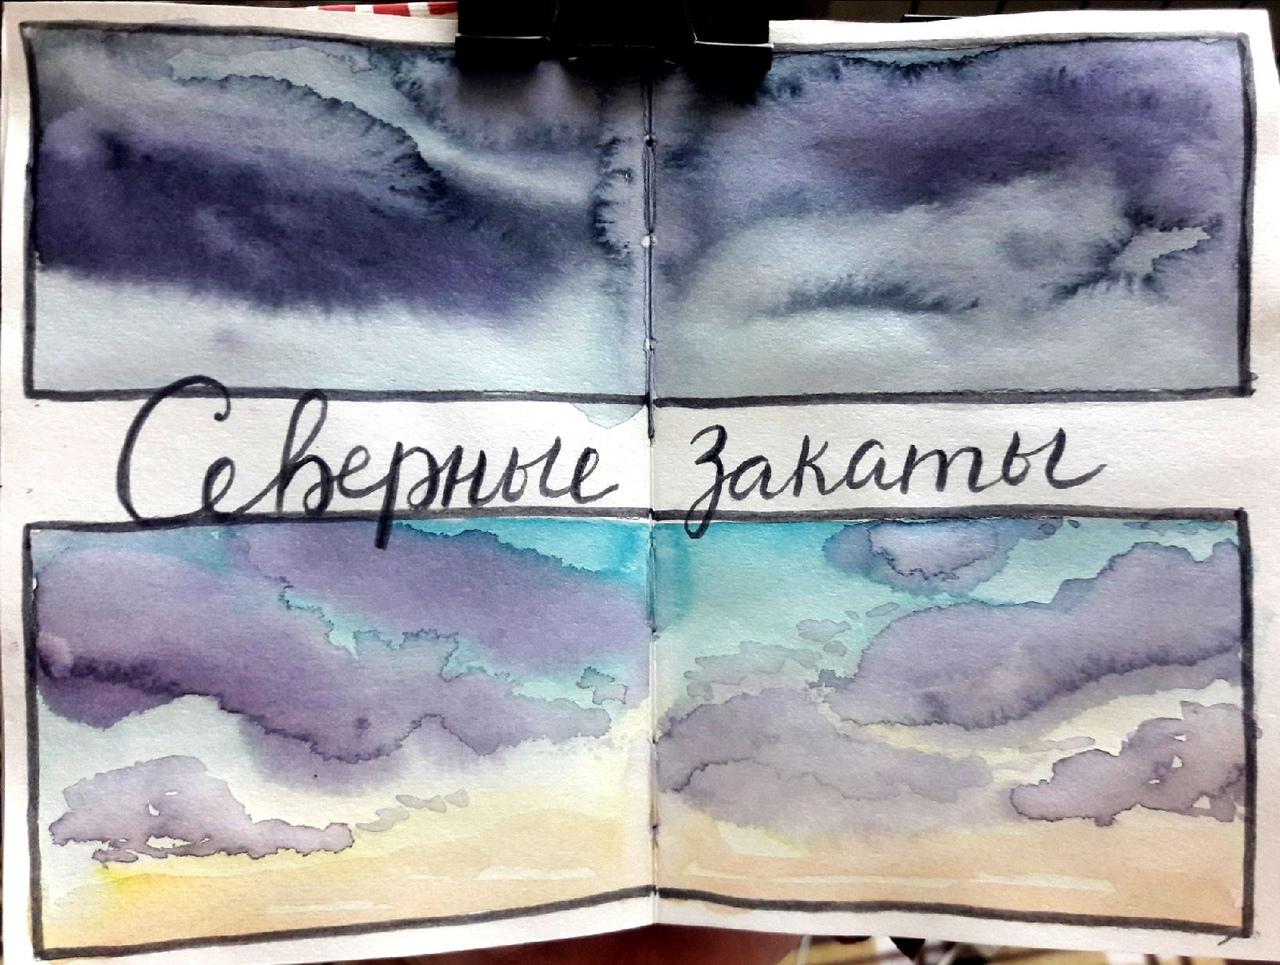 Северные закаты